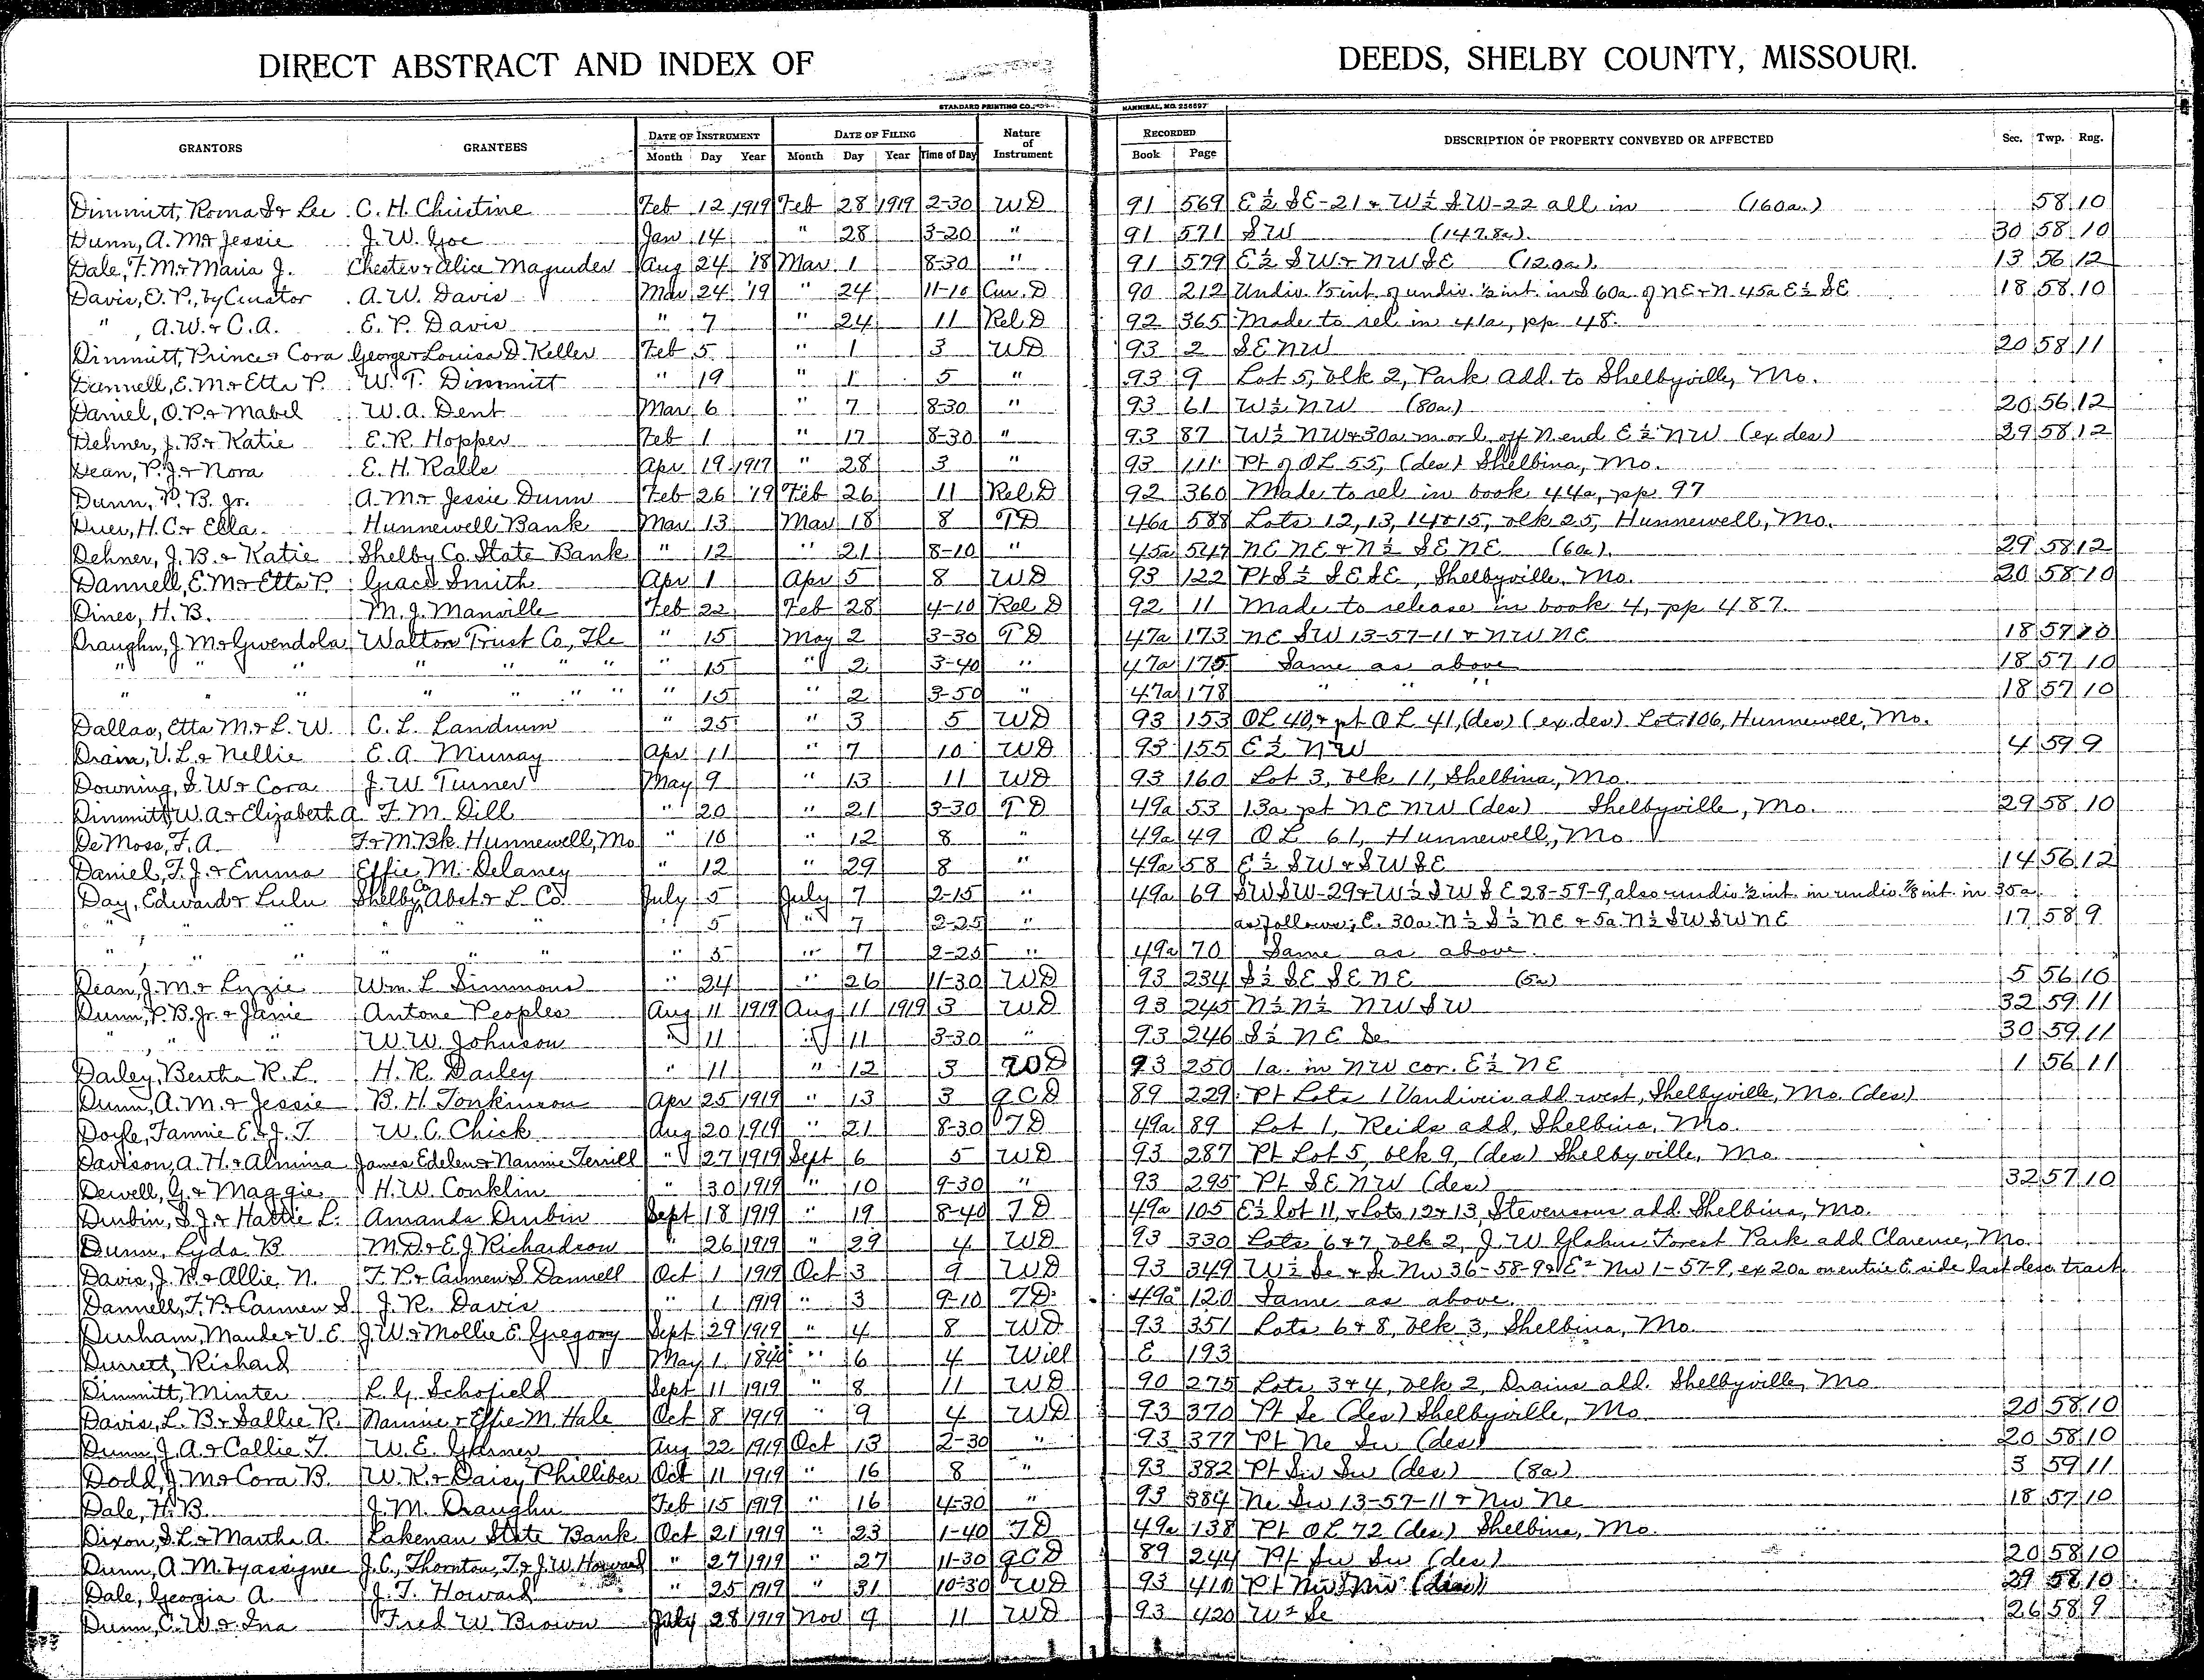 DIRECT ABSTRACT AND INDEX OF DEEDS, SHELBY COUNTY, MISSOURI.
STANDARD PRINTING CO. HANNIBAL, MO. 256597
GRANTORS GRANTEES DATE OF INSTRUMENT DATE OF FILING Nature of Instrument RECORDED DESCRIPTION OF PROPERTY CONVEYED OR AFFECTED Sec. Twp. Rng.
Month Day Year Month Day Year Time of Day Book Page
Dimmitt, Roma S & Lee C. H. Christine Feb 12 1919 Feb 28 1919 2-30 WD 91 569 E½ SE-21 & W½ SW-22 all in (160a.) 58 10
Dunn, A. M & Jessie J. W. Goe Jan 14 " 28 3-20 " 91 571 SW (147.8a) 30 58 10
Dale, F. M & Maria J. Chester & Alice Magruder Aug 24 '18 Mar 1 8-30 " 91 579 E½ SW & NW SE (120a) 13 56 12
Davis, E. P., by Curator A. W. Davis Mar 24 '19 " 24 11-10 Cur. D 90 212 Undiv. 1/5 int. of undiv. ½ int. in S 60a. of NE & N. 45a E½ SE 18 58 10
" , A. W. & C. A. E. P. Davis " 7 " 24 11 Rel D 92 365 Made to rel in 41a, pp 48.
Dimmitt, Prince & Cora George & Louisa D. Keller Feb 5 " 1 3 WD 93 2 SE NW 20 58 11
Dannell, E. M & Etta P. W. T. Dimmitt " 19 " 1 5 " 93 9 Lot 5, blk 2, Park Add. to Shelbyville, Mo.
Daniel, O. P. & Mabel W. A. Dent Mar 6 " 7 8-30 " 93 61 W½ NW (80a.) 20 56 12
Dehner, J. B. & Katie E. R. Hopper Feb 1 " 17 8-30 " 93 87 W½ NW & 30a m. or l. off N end E½ NW (ex des) 29 58 12
Dean, P. J. & Nora E. H. Ralls Apr 19 1917 " 28 3 " 93 111 Pt of OL 55, (des) Shelbina, Mo.
Dunn, P. B. Jr. A. M & Jessie Dunn Feb 26 '19 Feb 26 11 Rel D 92 360 Made to rel in book 44a, pp 97
Duer, H. C. & Ella Hunnewell Bank Mar 13 Mar 18 8 TD 46a 588 Lots 12, 13, 14 & 15, blk 25, Hunnewell, Mo.
Dehner, J. B. & Katie Shelby Co. State Bank " 12 " 21 8-10 " 45a 547 NE NE & N½ SE NE (60a) 29 58 12
Dannell, E. M & Etta P. Grace Smith Apr 1 Apr 5 8 WD 93 122 Pt S½ SE SE, Shelbyville, Mo. 20 58 10
Dines, H. B. M. J. Manville Feb 22 Feb 28 4-10 Rel D 92 11 Made to release in book 4, pp 487.
Draughn, J. M & Gwendola Walton Trust Co, The " 15 May 2 3-30 TD 47a 173 NE SW 13-57-11 & NW NE 18 57 10
" " " " " " " " 15 " 2 3-40 " 47a 175 Same as above 18 57 10
" " " " " " " " 15 " 2 3-50 " 47a 178 " " " 18 57 10
Dallas, Etta M. & L. W. C. L. Landrum " 25 " 3 5 WD 93 153 OL 40, & pt OL 41, (des) (ex. des) Lot 106, Hunnewell, Mo.
Drain, V. L. & Nellie E. A. Murray Apr 11 " 7 10 WD 93 155 E½ NW 4 59 9
Downing, S. W & Cora J. W. Turner May 9 " 13 11 WD 93 160 Lot 3, blk 11, Shelbina, Mo.
Dimmitt, W. A. & Elizabeth A F. M. Dill " 20 " 21 3-30 TD 49a 53 13a pt NE NW (des) Shelbyville, Mo. 29 58 10
DeMoss, F. A. F. & M. Bk. Hunnewell, Mo " 10 " 12 8 " 49a 49 OL 61, Hunnewell, Mo
Daniel, F. J. & Emma Effie M. Delaney " 12 " 29 8 " 49a 58 E½ SW & SW SE 14 56 12
Day, Edward & Lulu Shelby Co Abst & L. Co. July 5 July 7 2-15 " 49a 69 SW SW-29 & W½ SW SE 28-59-9, also undiv ½ int. in undiv. 7/8 int. in 35a.
" , " " " " " " 5 " 7 2-25 " as follows; E. 30a. N½ S½ NE & 5a. N½ SW SW NE 17 58 9
" , " " " " " " 5 " 7 2-25 " 49a 70 Same as above.
Dean, J. M. & Lizzie Wm. L Simmons " 24 " 26 11-30 WD 93 234 S½ SE SE NE (5a) 5 56 10
Dunn, P. B. Jr. & Janie Antone Peoples Aug 11 1919 Aug 11 1919 3 WD 93 245 N½ N½ NW SW 32 59 11
" , " " W. W. Johnson " 11 " 11 3-30 " 93 246 S½ NE Se 30 59 11
Darley, Bertha R. L. H. R. Darley " 11 " 12 3 WD 93 250 1a. in NW cor. E½ NE 1 56 11
Dunn, A. M. & Jessie B. H. Tonkinson Apr 25 1919 " 13 3 QCD 89 229 Pt Lots 1 Vandivers add west, Shelbyville, Mo. (des)
Doyle, Fannie E. & J. T. W. C. Chick Aug 20 1919 " 21 8-30 TD 49a 89 Lot 1, Reids add, Shelbina, Mo.
Davison, A. H. & Almina James Edelen & Nannie Terrill " 27 1919 Sept 6 5 WD 93 287 Pt Lot 5, blk 9, (des) Shelbyville, Mo
Dewell, G. & Maggie H. W. Conklin " 30 1919 " 10 9-30 " 93 295 Pt SE NW (des) 32 57 10
Durbin, S. J. & Hattie L. Amanda Durbin Sept 18 1919 " 19 8-40 TD 49a 105 E½ lot 11, & Lots 12 & 13, Stevensons add Shelbina, Mo.
Dunn, Lyda B M. D & E. J Richardson " 26 1919 " 29 4 WD 93 330 Lots 6 & 7 blk 2, J. W Glahn Forest Park add Clarence, Mo.
Davis, J. R. & Allie N. F. P. & Carmen S. Dannell Oct 1 1919 Oct 3 9 WD 93 349 W½ Se & Se Nw 36-58-9 & E½ Nw 1-57-9, ex 20a on entire E. side last desc tract
Dannell, F. P. & Carmen S. J. R. Davis " 1 1919 " 3 9-10 TD 49a 120 Same as above.
Durham, Maude & V. E. J. W & Mollie E. Gregory Sept 29 1919 " 4 8 WD 93 351 Lots 6 & 8, blk 3, Shelbina, Mo.
Durrett, Richard May 1 1840 " 6 4 Will E 193
Dimmitt, Minter L. G. Schofield Sept 11 1919 " 8 11 WD 90 275 Lots 3 & 4, blk 2, Drains add. Shelbyville, Mo
Davis, L. B & Sallie R. Nannie & Effie M. Hale Oct 8 1919 " 9 4 WD 93 370 Pt Se (des) Shelbyville, Mo 20 58 10
Dunn, J. A. & Callie F. W. E. Garner Aug 22 1919 Oct 13 2-30 " 93 377 Pt Ne Sw (des) 20 58 10
Dodd, J. M & Cora B. W. K. & Daisy Philliber Oct 11 1919 " 16 8 " 93 382 Pt Sw Sw (des) (8a) 3 59 11
Dale, H. B. J. M. Draughn Feb 15 1919 " 16 4-30 " 93 384 Ne Sw 13-57-11 & Nw Ne 18 57 10
Dixon, S. L. & Martha A. Lakenan State Bank Oct 21 1919 " 23 1-40 TD 49a 138 Pt OL 72 (des) Shelbina, Mo.
Dunn, A. M. by assignee J. C. Thornton, T. & J. W. Howard " 27 1919 " 27 11-30 QCD 89 244 Pt Sw Sw (des) 20 58 10
Dale, Georgia A. J. T. Howard " 25 1919 " 31 10-30 WD 93 410 Pt Nw Nw (des) 29 58 10
Dunn, C. W. & Ina Fred W. Brown July 28 1919 Nov 4 11 WD 93 420 W½ Se 26 58 9